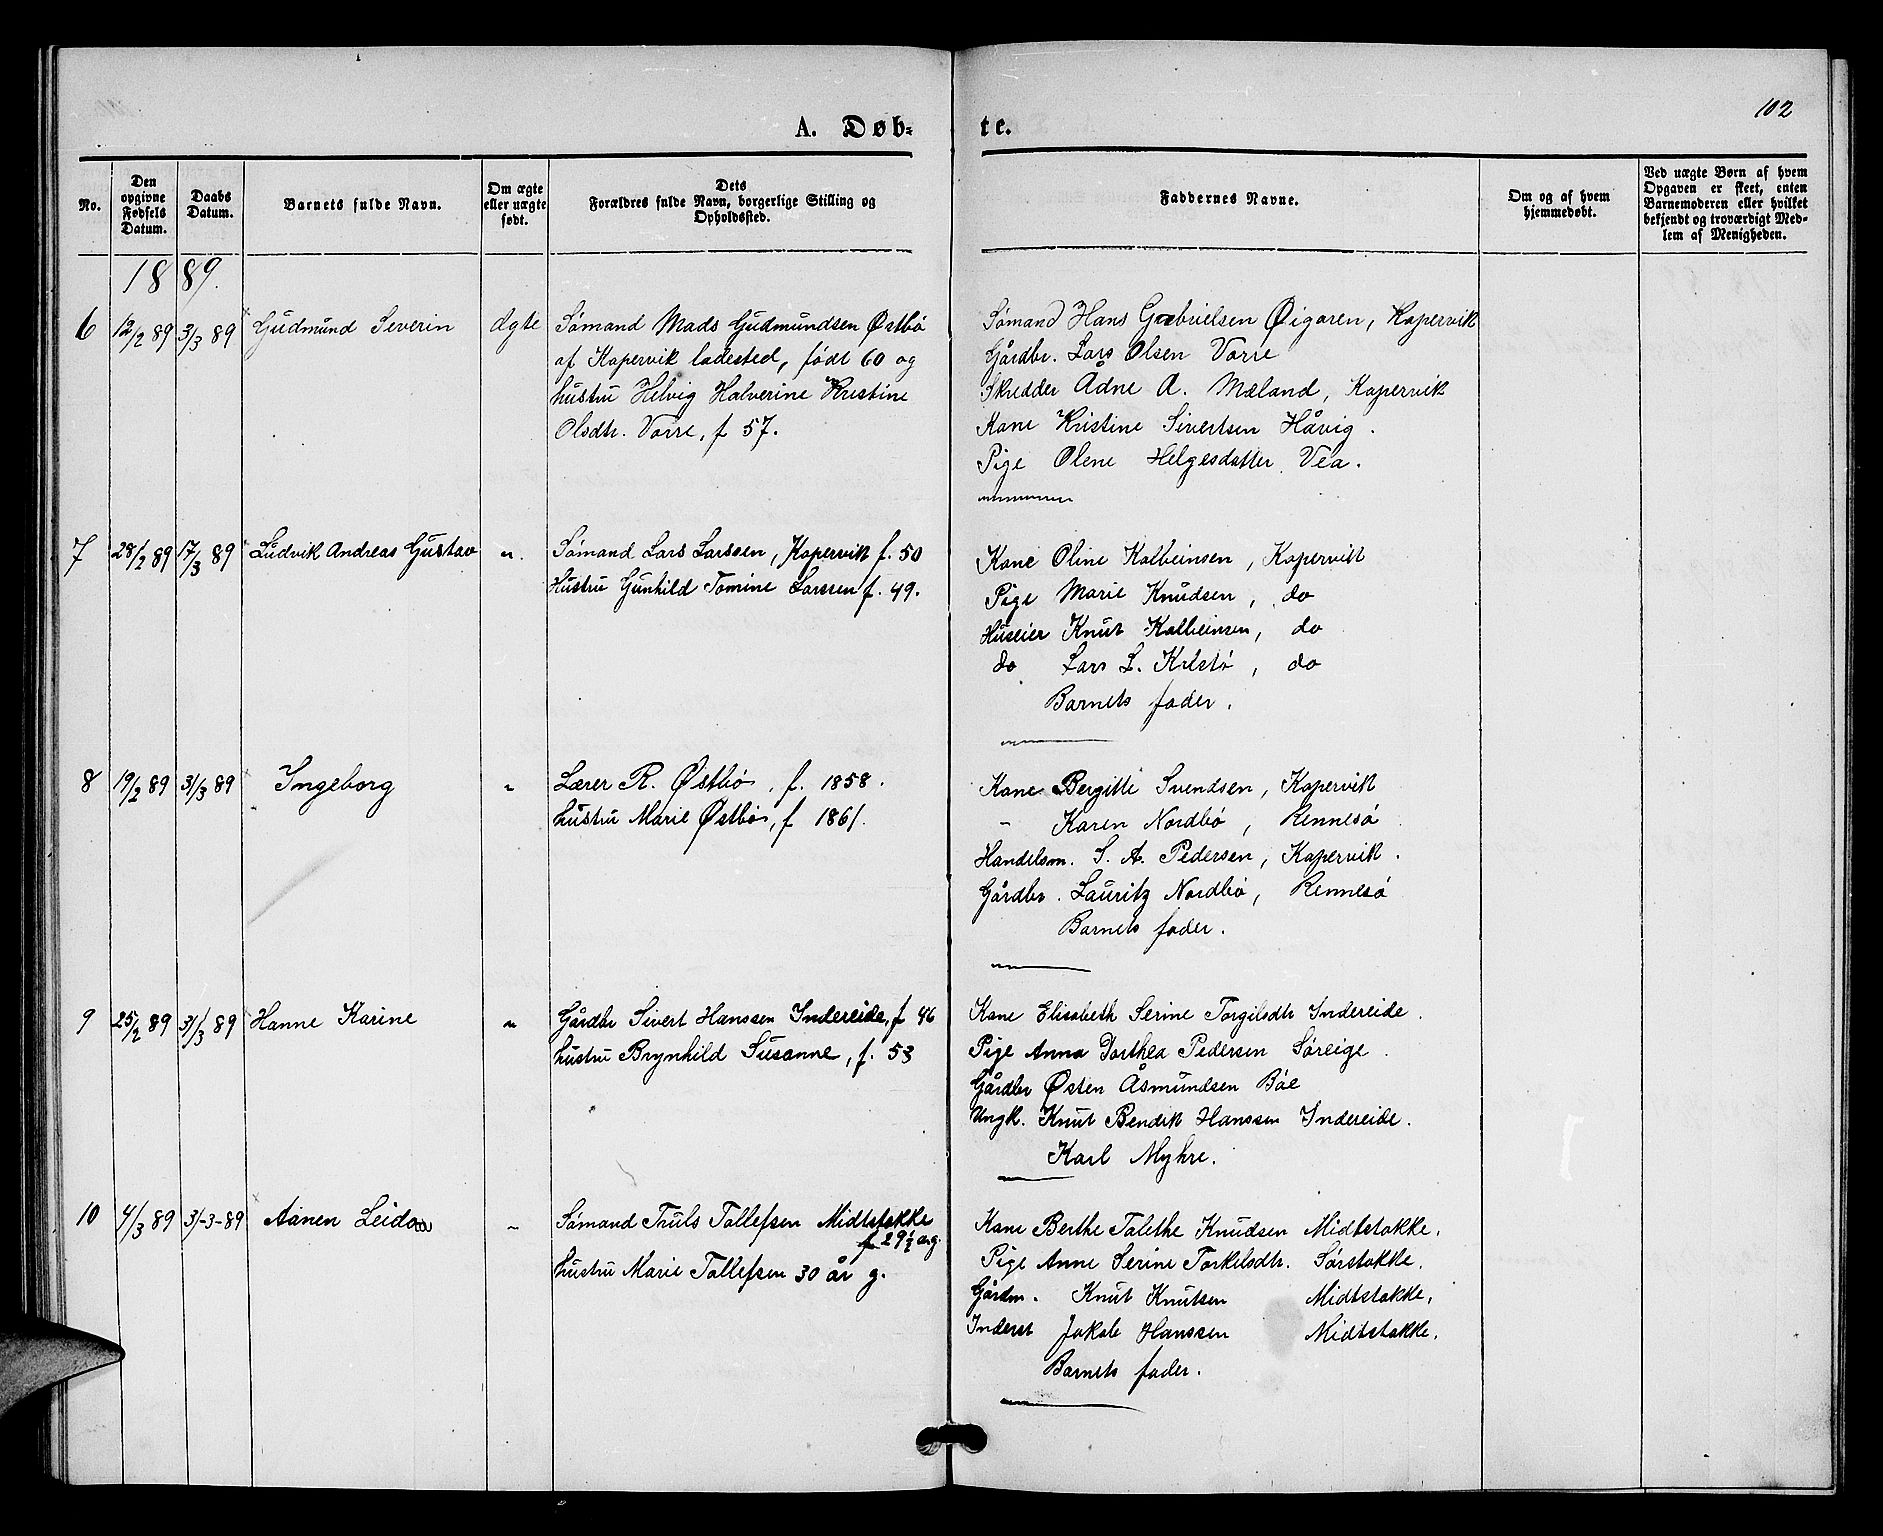 102
A. Døb-te.
No.
Den opgivne Fødsels Datum.
Daabs Datum.
Barnets fulde Navn.
Om ægte eller uægte født.
Dets Forældres fulde Navn, borgerlige Stilling og Opholdssted.
Faddernes Navne.
Om og af hvem hjemmedøbt.
Ved uægte Børn af hvem Opgaven er skeet, enten Barnemoderen eller hvilket bekjendt og troværdigt Medlem af Menigheden.
1889.
6 12/2 89 3/3 89 Gudmund Severin ægte
Sømand Mads Gudmundsen Østbø
af Kopervik ladested, født 60 og
hustru Helvig Halverine Kristine
Olsdtr. Vorre, f 57.
Sømand Hans Gabrielsen Øigaren, Kopervik
Gårdbr. Lars Olsen Vorre
Skredder Ådne A. Mæland, Kopervik
Kone Kristine Sivertsen Håvig.
Pige Olene Helgesdatter Vea.
7 28/2 89 17/3 89 Ludvik Andreas Gustav "
Sømand Lars Larssen, Kopervik f. 50
Hustru Gunhild Tomine Larssen f. 49.
Kone Oline Kolbeinsen, Kopervik
Pige Marie Knudsen, do
Huseier Knut Kolbeinsen, do
do Lars L. Kilstø, do
Barnets fader.
8 19/2 89 31/3 89 Ingeborg "
Lærer R. Østbø, f. 1858.
hustru Marie Østbø, f 1861.
Kone Bergitte Svendsen, Kopervik
" Karen Nordbø, Rennesø
Handelsm. S. A. Pedersen, Kopervik.
Gårdbr. Lauritz Nordbø, Rennesø
Barnets fader.
9 25/2 89 31/3 89 Hanne Karine "
Gårdbr Sivert Hanssen Indereide, f 46
hustru Brynhild Susanne, f. 53
Kone Elisabeth Serine Torgilsdtr Indereide.
Pige Anna Dorthea Pedersen Søreige.
Gårdbr Østen Åsmundsen Bøe
Ungk. Knut Bendik Hanssen Indereide.
Karl Myhre.
10 4/3 89 31-3-89 Aanen Leido "
Sømand Truls Tollefsen Midtstokke
f 29½ år g.
hustru Marie Tollefsen 30 år g.
Kone Berthe Talethe Knudsen Midtstokke.
Pige Anne Serine Torkelsdtr. Sørstokke.
Gårdm. Knut Knutsen Midtstokke.
Inderst Jakob Hanssen Midtstokke.
Barnets fader.